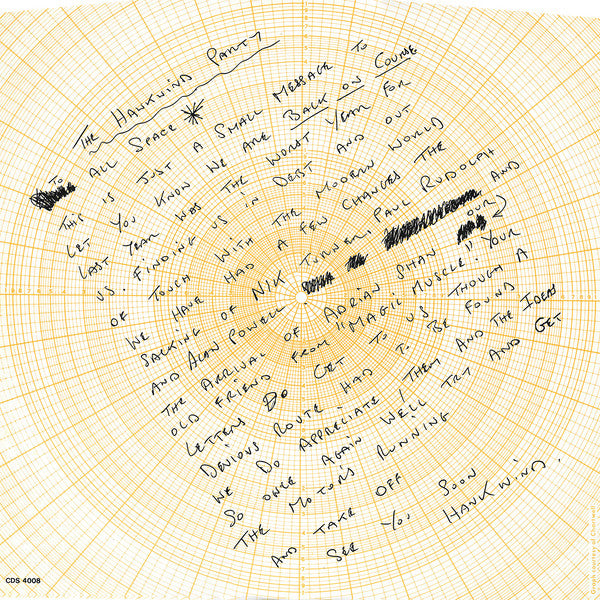 THE HAWKWIND PARTY
TO ALL SPACE
THIS IS JUST A SMALL MESSAGE TO
LET YOU KNOW WE ARE BACK ON COURSE
LAST YEAR WAS THE WORST YEAR FOR
US. FINDING US IN DEBT AND OUT
OF TOUCH WITH THE MODERN WORLD
WE HAVE HAD A FEW CHANGES THE
SACKING OF NIK TURNER, PAUL RUDOLPH AND
AND ALAN POWELL
THE ARRIVAL OF ADRIAN SHAW OUR
OLD FRIEND FROM "MAGIC MUSCLE". YOUR
LETTERS DO GET TO US THOUGH A
DEVIOUS ROUTE HAD TO BE FOUND
WE DO APPRECIATE THEM AND THE IDEAS
SO ONCE AGAIN WE'LL TRY AND GET
THE MOTOR'S RUNNING
AND TAKE OFF
SEE YOU SOON
HAWKWIND.
CDS 4008
Graph courtesy of Chartwell